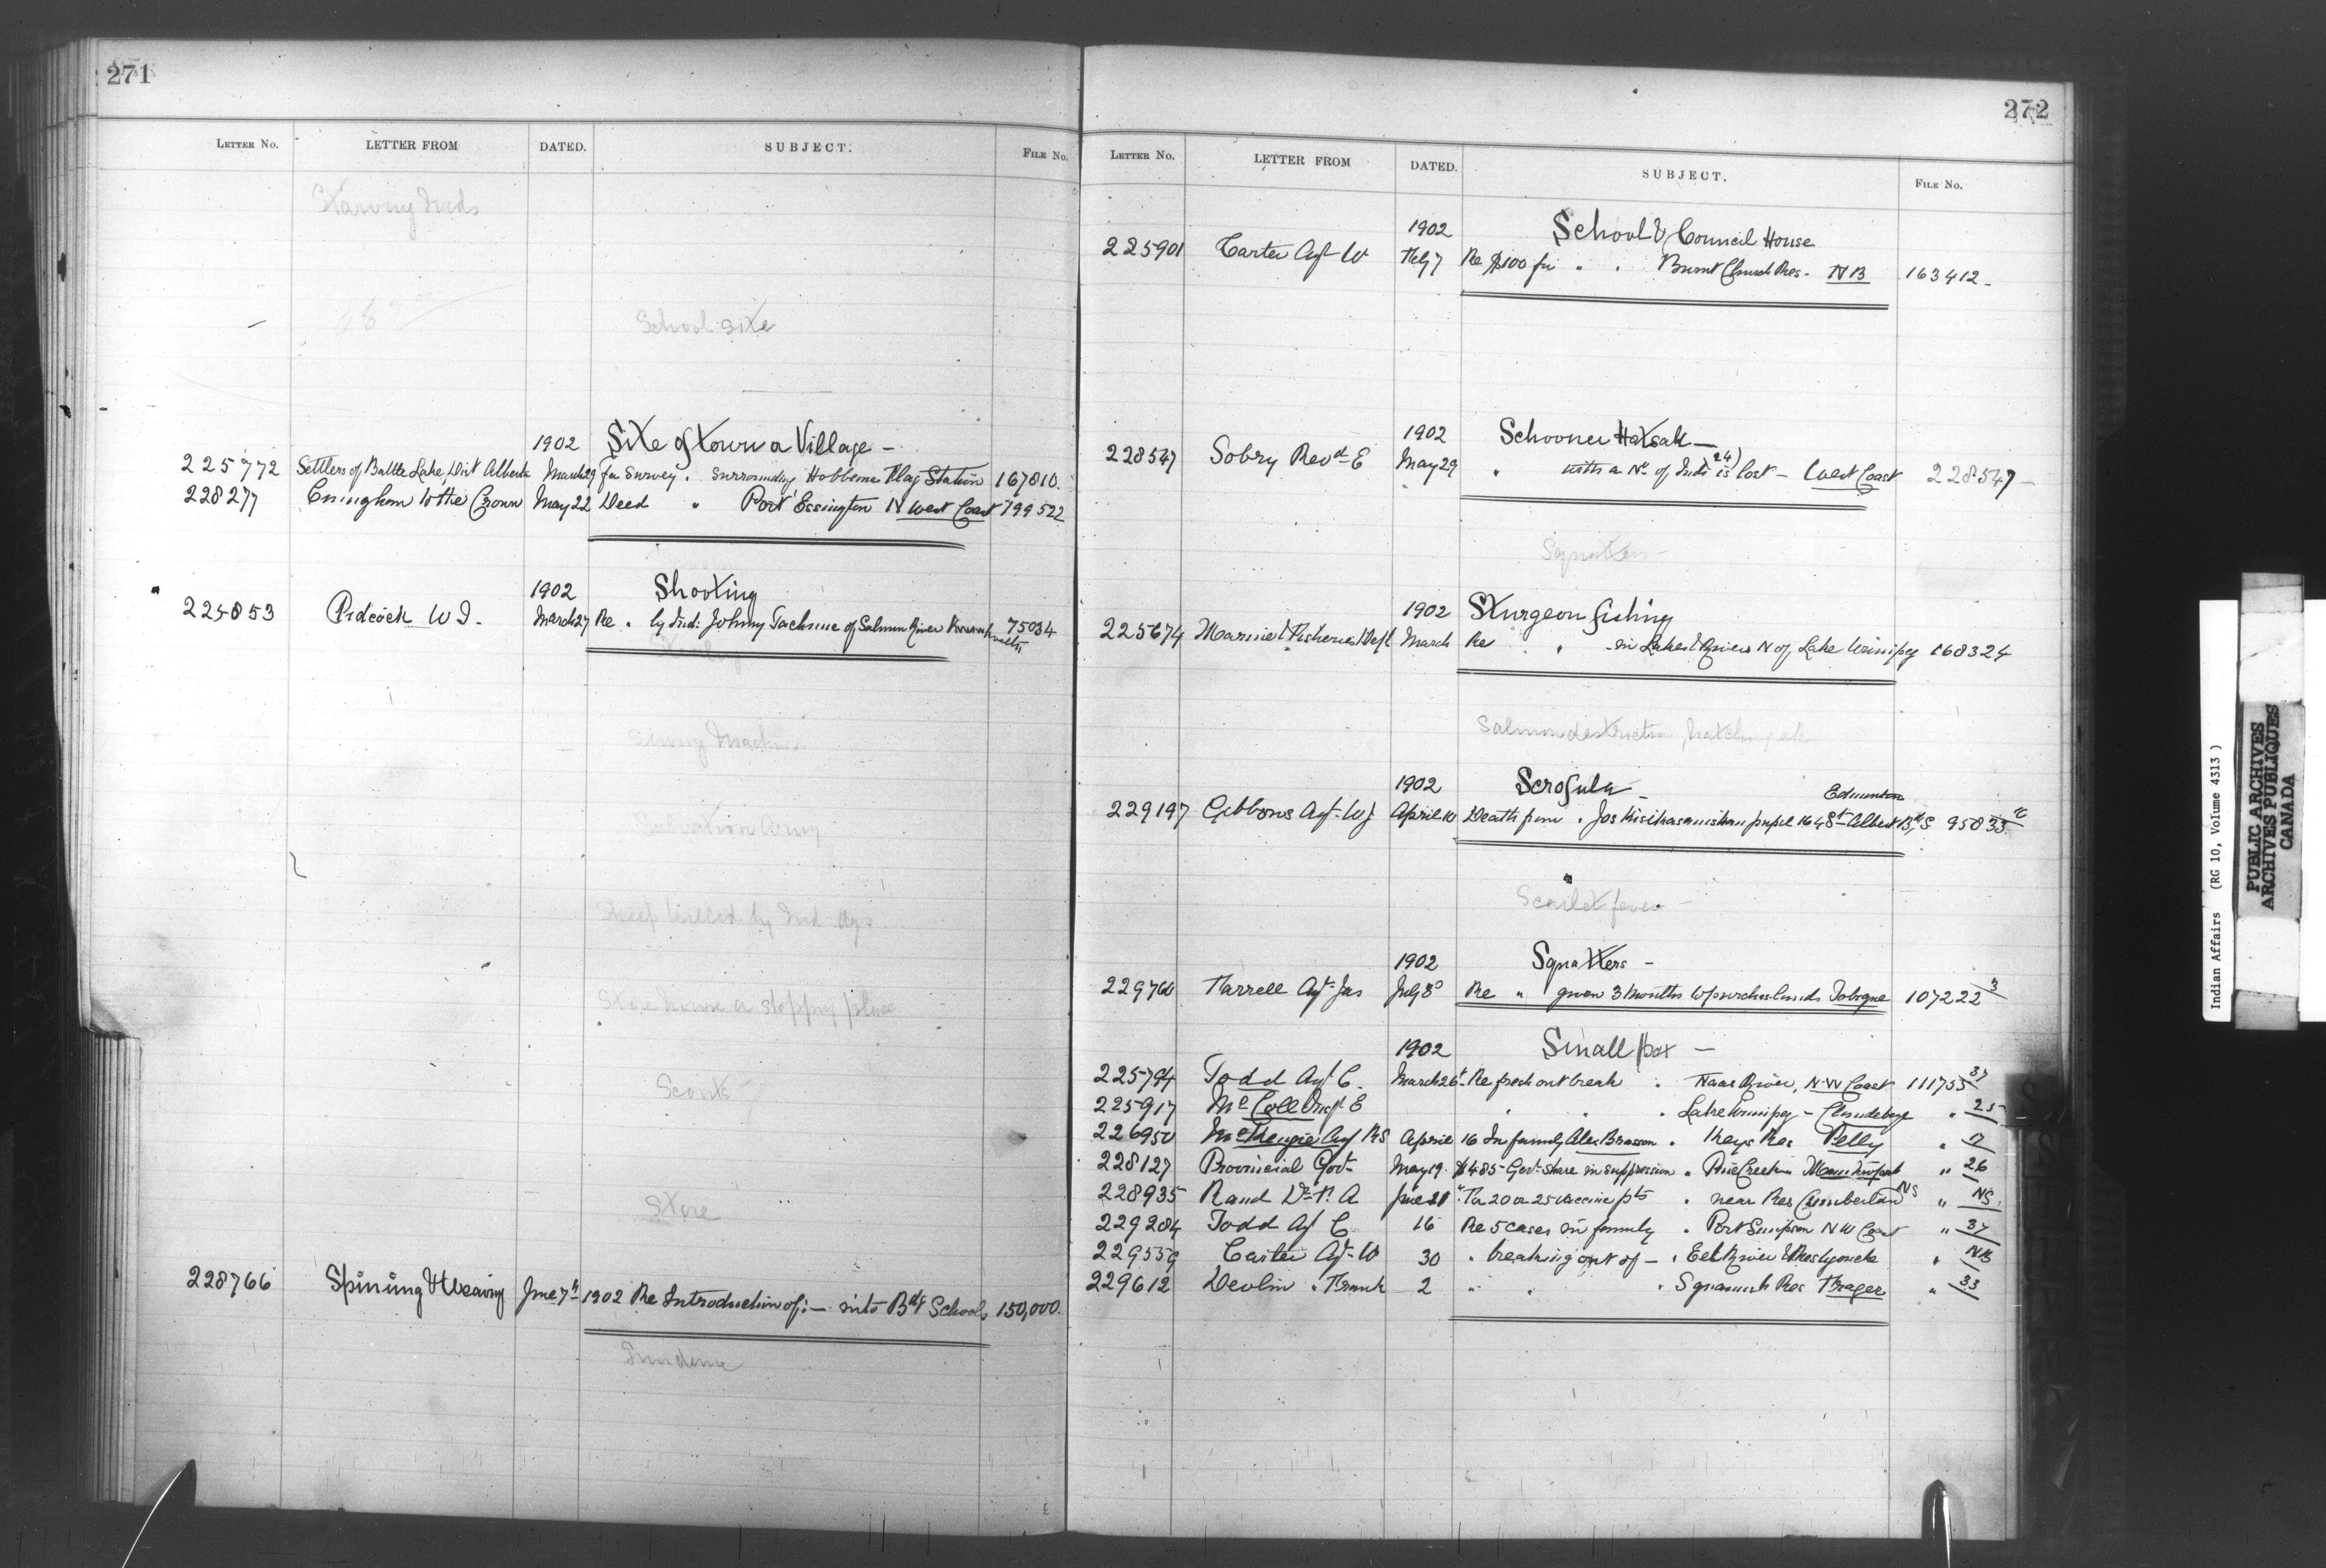 271
LETTER No. LETTER FROM DATED. SUBJECT. FILE No.
Starving Inds
School site
1902 Site of town or Village —
225772 Settlers of Battle Lake, Dist Alberta March 29 for Survey . surrounding Hobbema Flag Station 167810.
228277 Cuningham to the Crown May 22 Deed " Port Essington N West Coast 799522
1902 Shooting
225853 Pidcock W I. March 27 Re . by Ind: Johnny of Salmon River 75034
Sewing Machine
Salvation Army
Sheep killed by Ind dogs
Store house or stopping place
Scouts
Store
228766 Spinning & Weaving June 7th 1902 Re Introduction of :— into Bdg Schools 150,000.
272
LETTER No. LETTER FROM DATED. SUBJECT. FILE No.
1902 School & Council House
225901 Carter Agt W Feby 7 Re $100 for " . Burnt Church Res - NB 163412 -
1902 Schooner Hatsah —
228547 Sobry Revd E May 29 " with a No of Inds (24) is lost — West Coast 228547 —
Squatters -
1902 Sturgeon fishing
225674 Marine & Fisheries Dept March Re . in Lakes & Rivers N of Lake Winnipeg 168324
Salmon destruction, hatching etc
1902 Scrofula —
Edmonton
229197 Gibbons Agt W J April 10 Death from . Jos pupil 164 St Albert Bdg S 95833
Scarlet fever —
1902 Squatters —
229760 Farrell Agt Jas July 8 Re " given 3 Months to purchase lands Tobique 107222 3
1902 Small pox —
225794 Todd Agt C. March 26 Re fresh out break . Naas River, N.W Coast 111755 37
225917 McColl Inspt E " . . Lake Winnipeg — Clandeboye " 25
226950 McKenzie Agt RS April 16 In family Alex Brasson . Keys Res Pelly "
228127 Provincial Govt May 19. $485 Govt share in suppression " Pine Creek " 26
228935 Rand Dr F. A June 21 " For 20 or 25 vaccine pts . near Res Cumberland NS " NS.
229204 Todd Agt C 16 Re 5 cases in family . Port Simpson N W Coast " 37
229559 Carter Agt W 30 . breaking out of — . Eel River & Restigouche " NB
229612 Devlin " Frank 2 " . . Squamish Res Fraser " 33
Indian Affairs (RG 10, Volume 4313)
PUBLIC ARCHIVES
ARCHIVES PUBLIQUES
CANADA